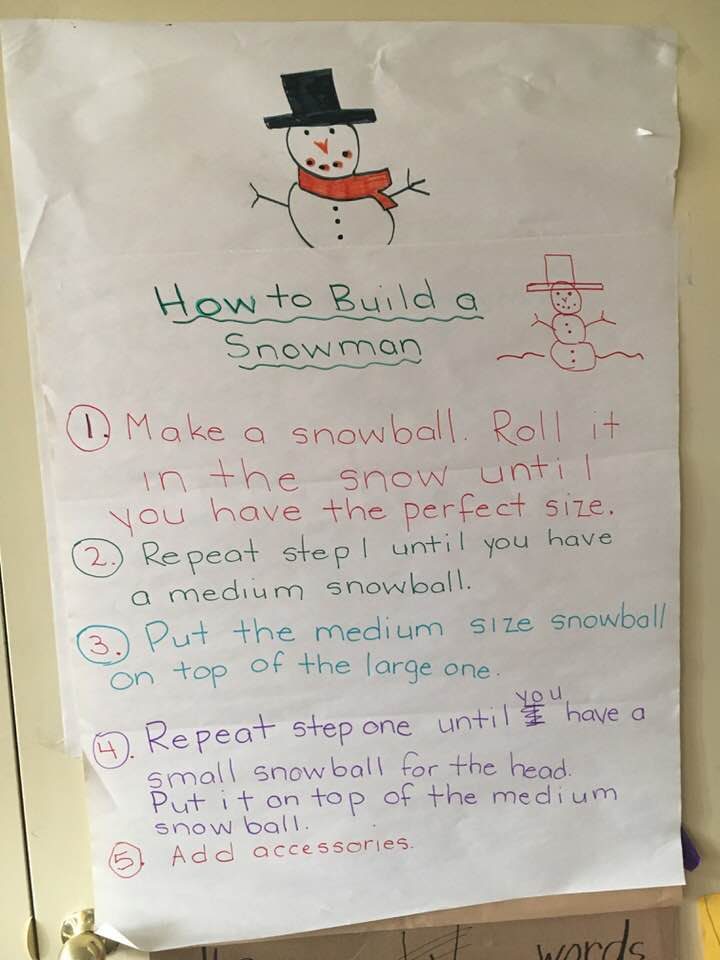 How to Build a
Snowman
1. Make a snowball. Roll it
in the snow until
you have the perfect size.
2. Repeat step 1 until you have
a medium snowball.
3. Put the medium size snowball
on top of the large one.
4. Repeat step one until you have a
small snowball for the head.
Put it on top of the medium
snow ball.
5. Add accessories.
words